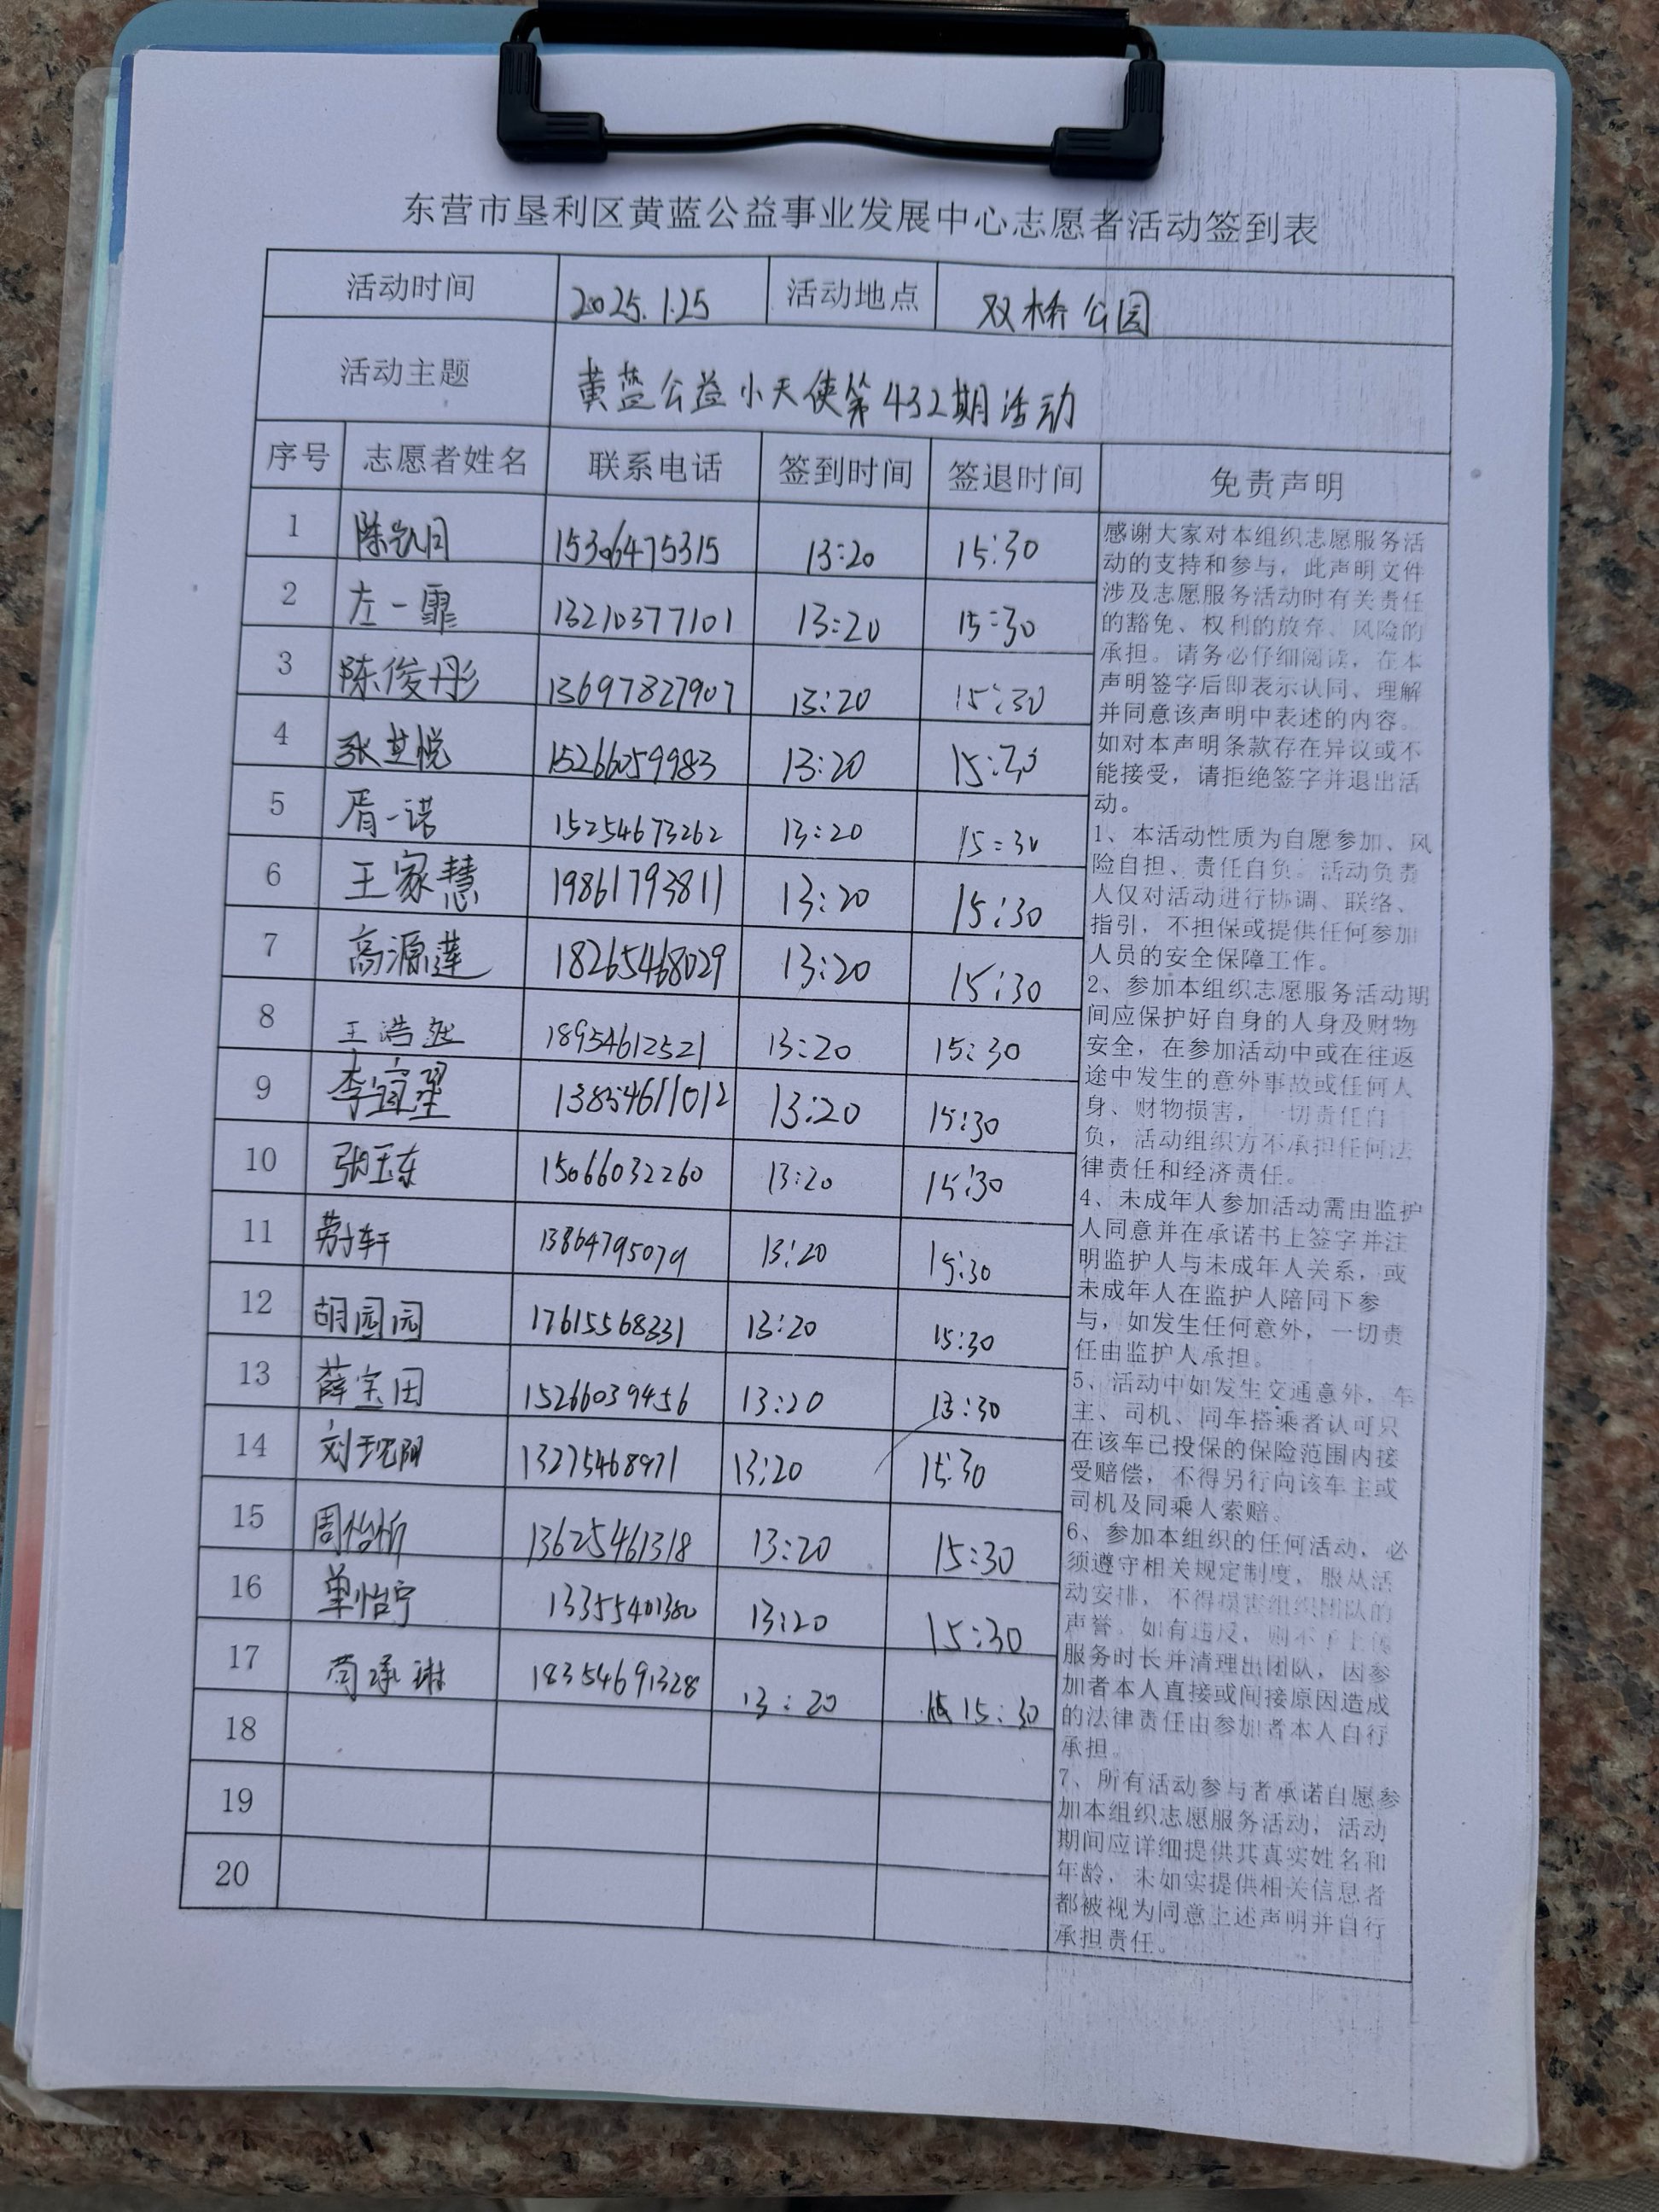 东营市垦利区黄蓝公益事业发展中心志愿者活动签到表
活动时间 2025.1.25 活动地点 双桥公园
活动主题 黄蓝公益小天使第432期活动
序号 志愿者姓名 联系电话 签到时间 签退时间 免责声明
1 陈凯月 15306475315 13:20 15:30
2 左一霏 13210377101 13:20 15:30
3 陈俊彤 13697827907 13:20 15:30
4 张芷悦 15266059983 13:20 15:30
5 胥一诺 15254673262 13:20 15:30
6 王家慧 19861793811 13:20 15:30
7 高源莲 18265468029 13:20 15:30
8 王浩然 18954612521 13:20 15:30
9 李宜星 13854611012 13:20 15:30
10 张玉东 15066032260 13:20 15:30
11 13864795079 13:20 15:30
12 胡园园 17615568331 13:20 15:30
13 薛宝田 15266039456 13:20 15:30
14 13275468971 13:20 15:30
15 周怡昕 13625461318 13:20 15:30
16 单怡宁 13355401380 13:20 15:30
17 苟承琳 18354691328 13:20 15:30
18
19
20
感谢大家对本组织志愿服务活
动的支持和参与，此声明文件
涉及志愿服务活动时有关责任
的豁免、权利的放弃、风险的
承担。请务必仔细阅读，在本
声明签字后即表示认同、理解
并同意该声明中表述的内容。
如对本声明条款存在异议或不
能接受，请拒绝签字并退出活
动。
1、本活动性质为自愿参加、风
险自担、责任自负。活动负责
人仅对活动进行协调、联络、
指引，不担保或提供任何参加
人员的安全保障工作。
2、参加本组织志愿服务活动期
间应保护好自身的人身及财物
安全，在参加活动中或在往返
途中发生的意外事故或任何人
身、财物损害，一切责任自
负，活动组织方不承担任何法
律责任和经济责任。
4、未成年人参加活动需由监护
人同意并在承诺书上签字并注
明监护人与未成年人关系，或
未成年人在监护人陪同下参
与，如发生任何意外，一切责
任由监护人承担。
5、活动中如发生交通意外，车
主、司机、同车搭乘者认可只
在该车已投保的保险范围内接
受赔偿，不得另行向该车主或
司机及同乘人索赔。
6、参加本组织的任何活动，必
须遵守相关规定制度，服从活
动安排，不得损害组织团队的
声誉。如有违反，则不予上传
服务时长并清理出团队，因参
加者本人直接或间接原因造成
的法律责任由参加者本人自行
承担。
7、所有活动参与者承诺自愿参
加本组织志愿服务活动，活动
期间应详细提供其真实姓名和
年龄，未如实提供相关信息者
都被视为同意上述声明并自行
承担责任。